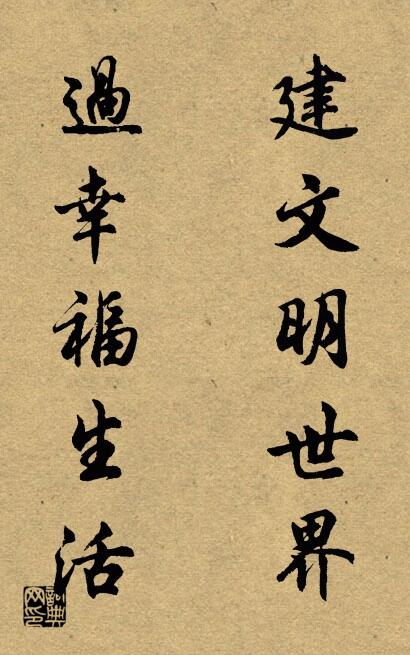 建文明世界
過幸福生活